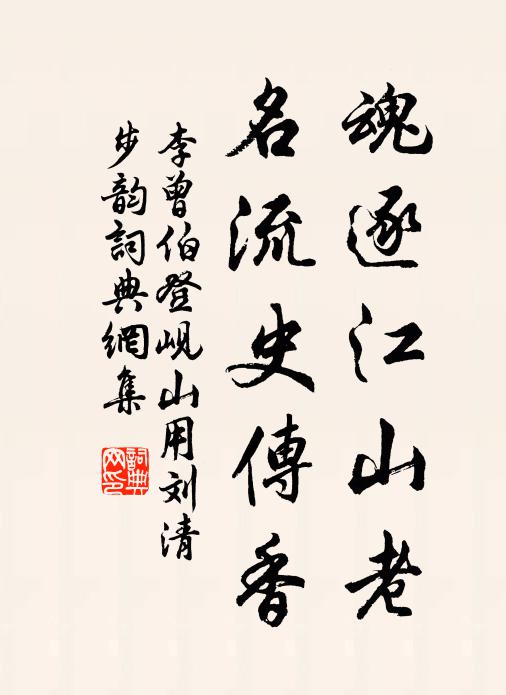 魂逐江山老
名流史傳香
李曾伯登岘山用刘清
步韵詞典網集
詞典网印